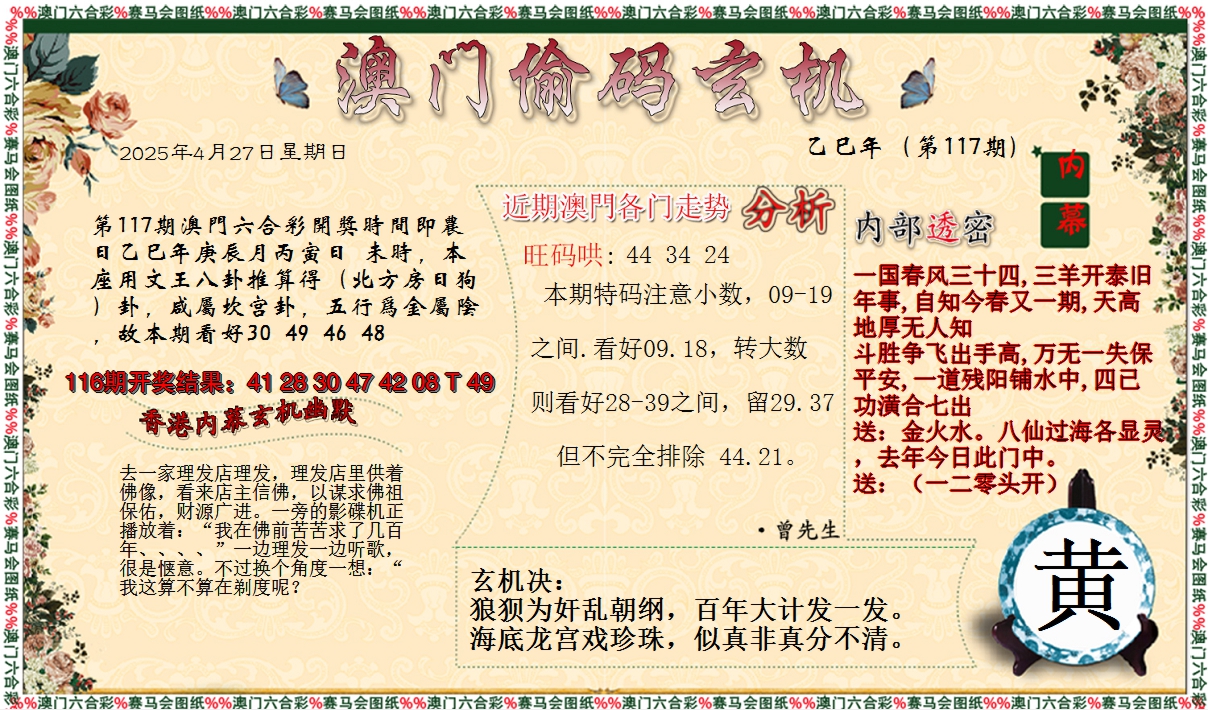 %%澳门六合彩%赛马会图纸%%澳门六合彩%赛马会图纸%%澳门六合彩%赛马会图纸%%澳门六合彩%赛马会图纸%%澳门六合彩%赛马会图纸%%澳门六合彩%赛马会图纸%%
澳门偷码玄机
2025年4月27日星期日
乙巳年（第117期）
内幕
第117期澳門六合彩開獎時間即農
日乙巳年庚辰月丙寅日 未時，本
座用文王八卦推算得（北方房日狗
）卦，咸屬坎宫卦，五行爲金屬陰
，故本期看好30 49 46 48
116期开奖结果：41 28 30 47 42 08 T 49
香港内幕玄机幽默
去一家理发店理发，理发店里供着
佛像，看来店主信佛，以谋求佛祖
保佑，财源广进。一旁的影碟机正
播放着：“我在佛前苦苦求了几百
年、、、、”一边理发一边听歌，
很是惬意。不过换个角度一想：“
我这算不算在剃度呢？
近期澳門各门走势 分析
旺码哄: 44 34 24
本期特码注意小数，09-19
之间.看好09.18，转大数
则看好28-39之间，留29.37
但不完全排除 44.21。
·曾先生
内部透密
一国春风三十四,三羊开泰旧
年事,自知今春又一期,天高
地厚无人知
斗胜争飞出手高,万无一失保
平安,一道残阳铺水中,四已
功潢合七出
送：金火水。八仙过海各显灵
，去年今日此门中。
送：（一二零头开）
玄机决：
狼狈为奸乱朝纲，百年大计发一发。
海底龙宫戏珍珠，似真非真分不清。
黄
%%澳门六合彩%赛马会图纸%%澳门六合彩%赛马会图纸%%澳门六合彩%赛马会图纸%%澳门六合彩%赛马会图纸%%澳门六合彩%赛马会图纸%%澳门六合彩%赛马会图纸%%